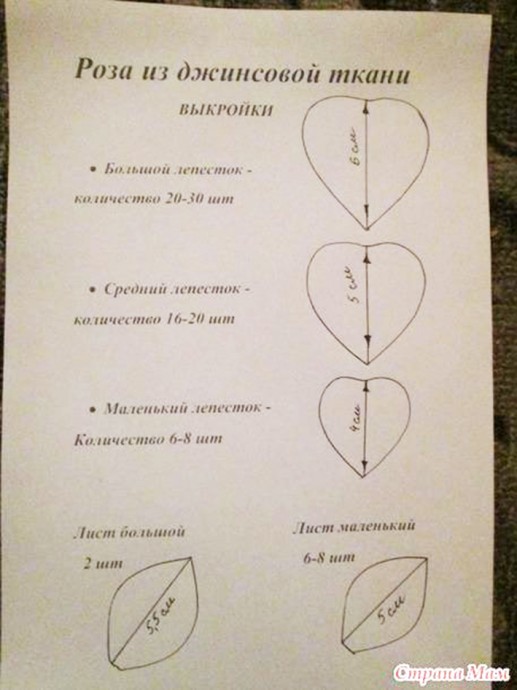 Роза из джинсовой ткани
ВЫКРОЙКИ
• Большой лепесток -
количество 20-30 шт
6 см
• Средний лепесток -
количество 16-20 шт
5 см
• Маленький лепесток -
Количество 6-8 шт
4 см
Лист большой
2 шт
5,5 см
Лист маленький
6-8 шт
5 см
Страна Мам